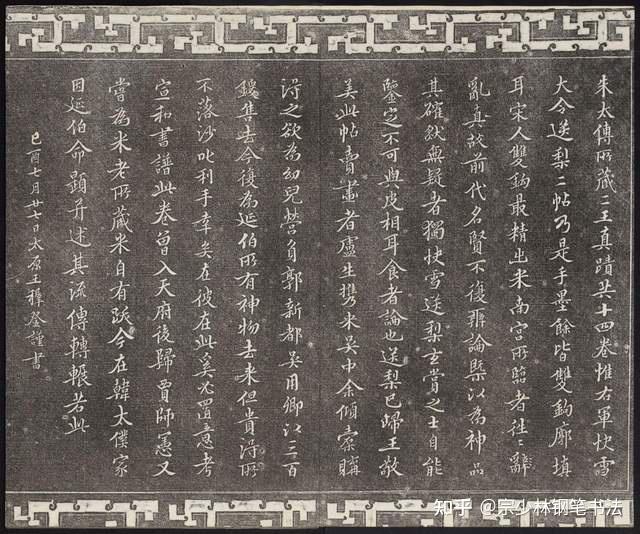 朱太傅所藏二王真蹟共十四卷惟右軍快雪
大令送梨二帖乃是手墨餘皆雙鈎廓填
耳宋人雙鈎最精出米南宮所臨者往〻
亂真故前代名賢不復辨論槩以為神品
其確然無疑者獨快雪送梨玄賞之士自能
鑒定不可與皮相耳食者論也送梨已歸王敬
美此帖賣畫者盧生攜來吳中余傾橐購
得之欲為幼兒營負郭新都吳用卿以三百
鍰售去今復為延伯所有神物去來但貴得所
不落沙叱利手幸矣在彼在此奚必置意考
宣和書譜此卷曾入天府後歸賈師憲又
嘗為米老所藏米自有跋今在韓太僕家
因延伯命題并述其流傳轉輾若此
己酉七月廿七日太原王穉登謹書
知乎 @宗少林钢笔书法